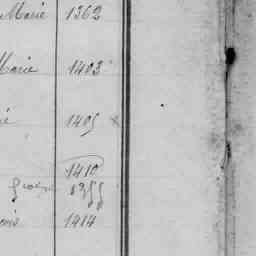 Marie 1362
Marie 1403
1405
1410
1355
1414